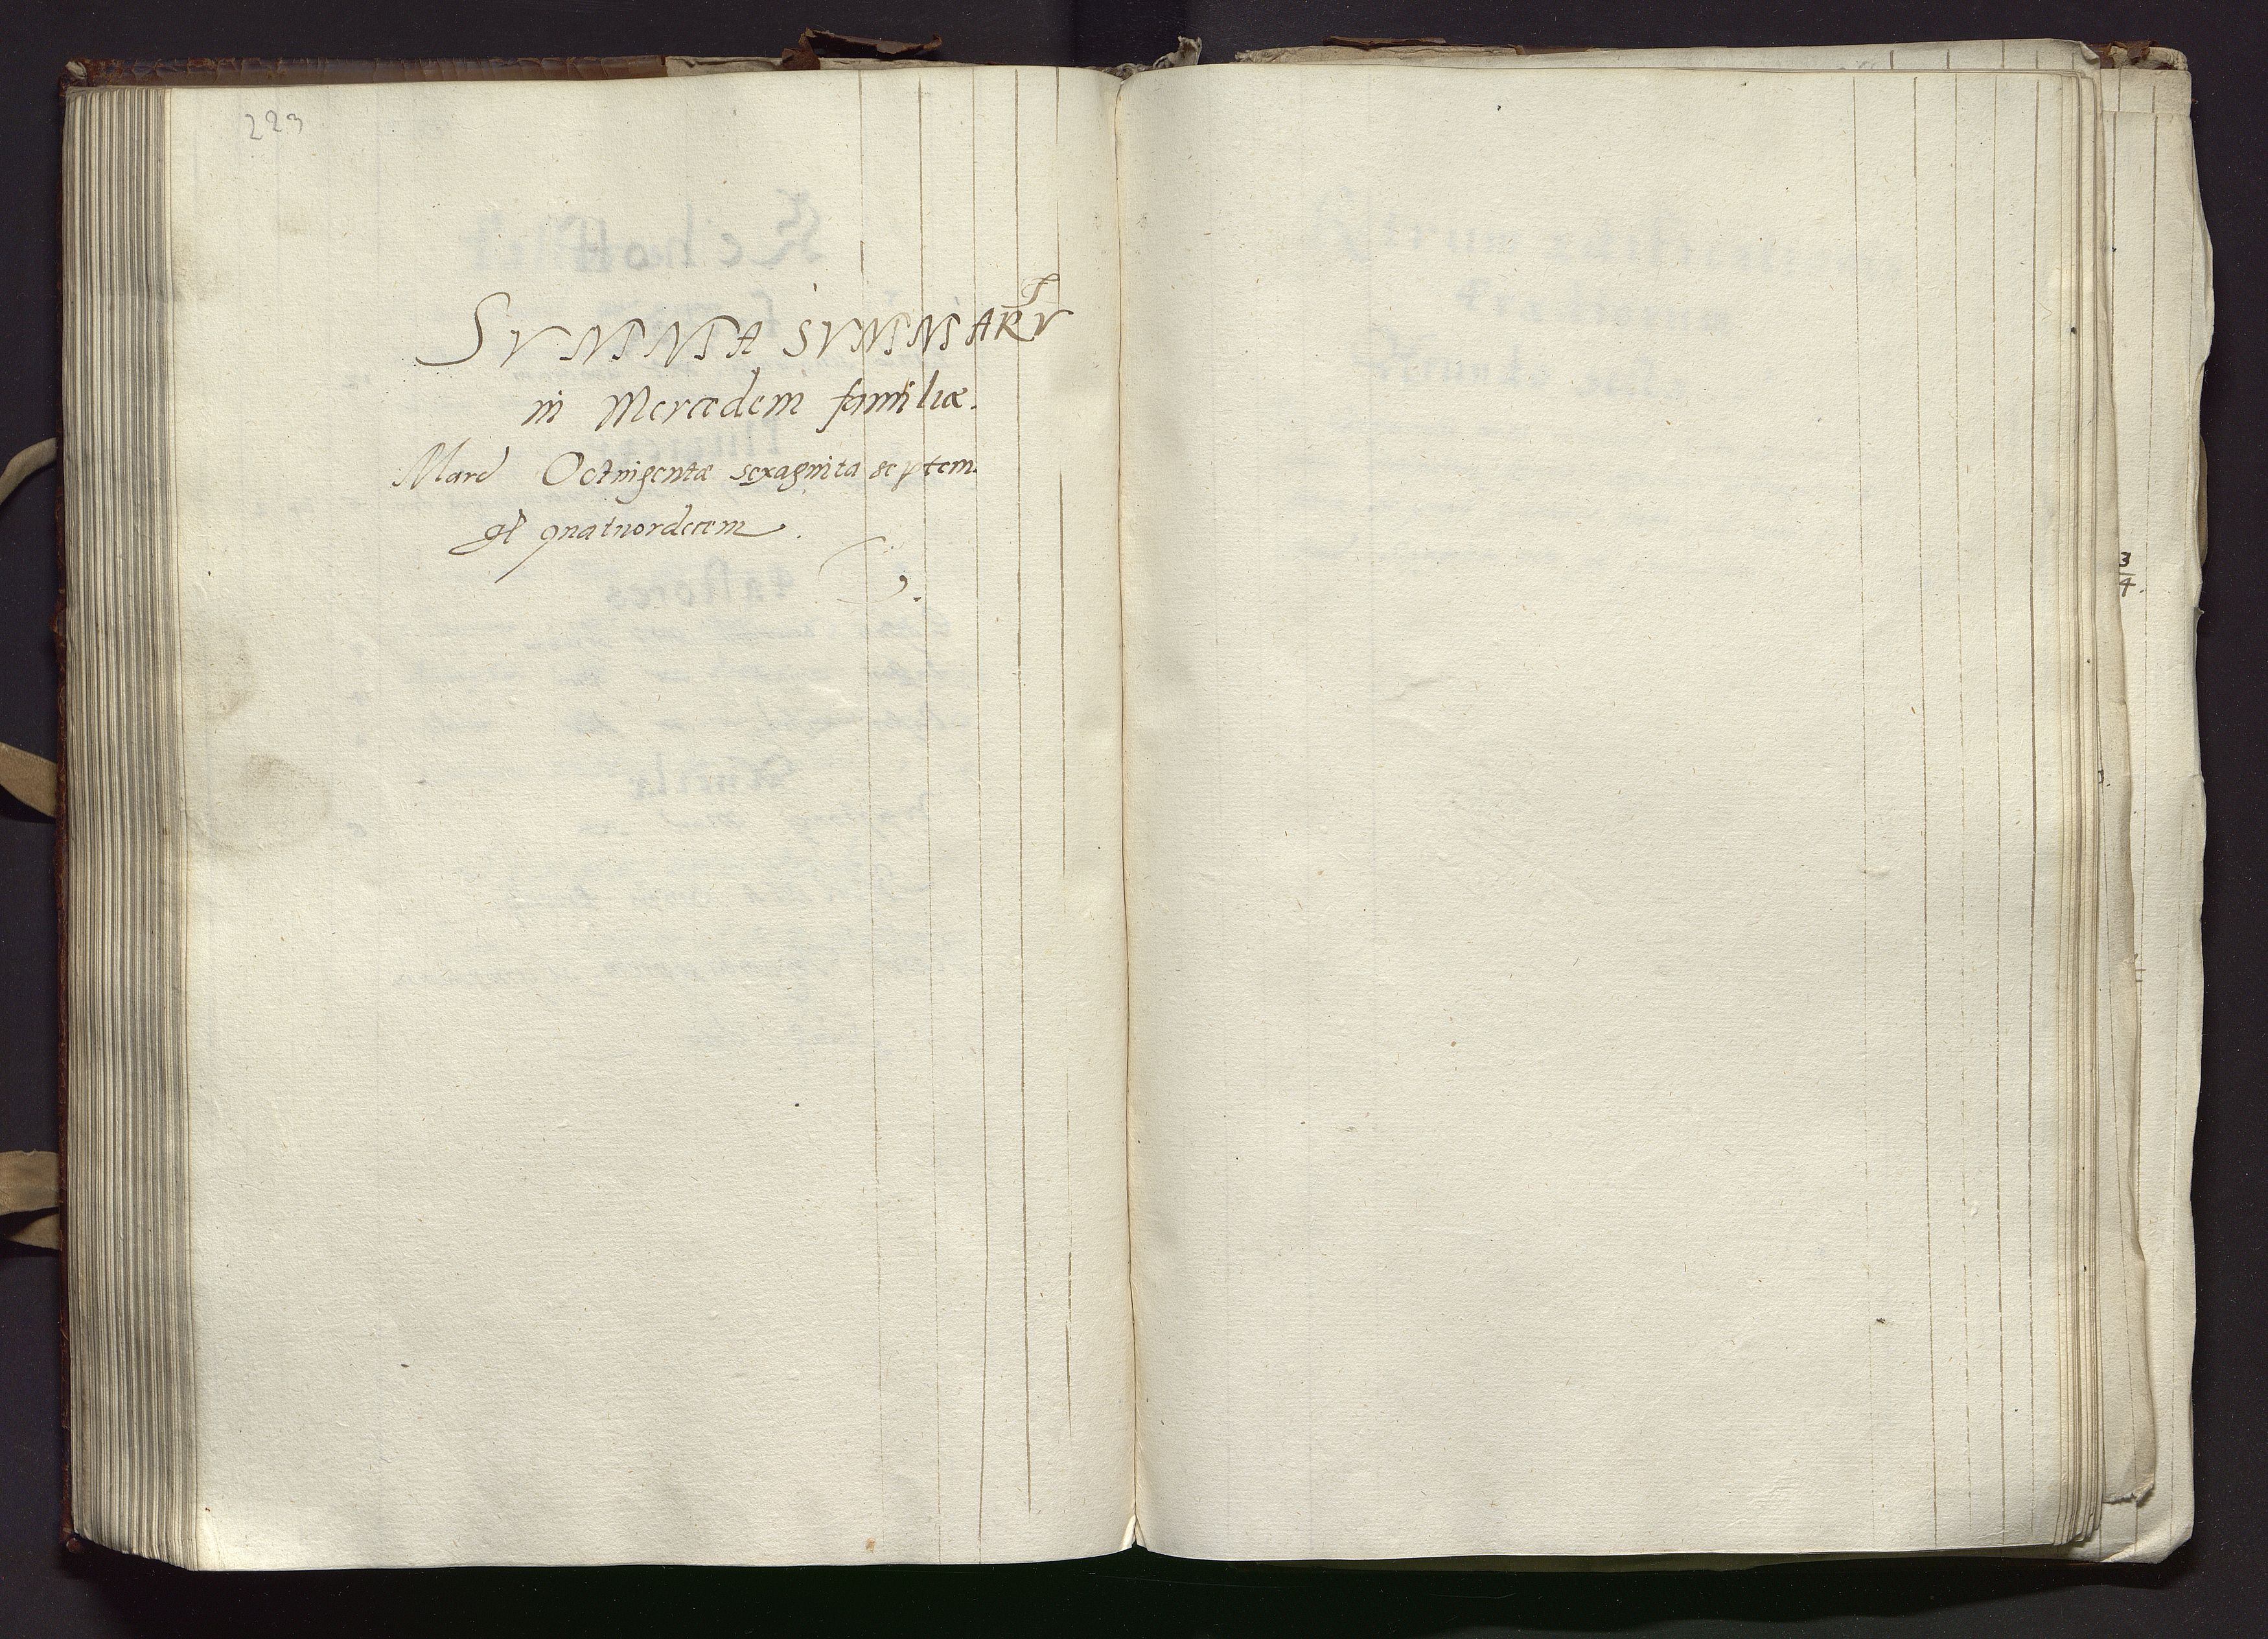 223
SVMMA SVMMARV̄
in Mercedem familiæ.
Marc Octingentæ sexaginta septem.
gl quatuordecem.
3
4.